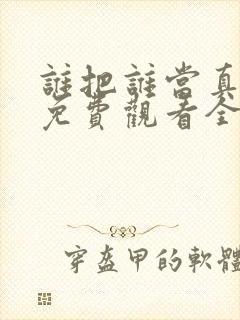 誰把誰當真
免費觀看全
穿盔甲的軟體